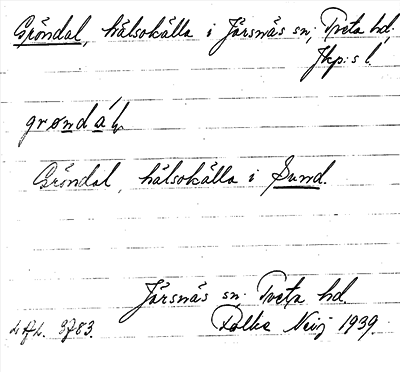 Gröndal, hälsokälla i Järsnäs sn, Tveta hd.
Jkp:s l.
grøndál
Gröndal, hälsokälla i Sund.
Järsnäs sn. Tveta hd.
3783.
1939.